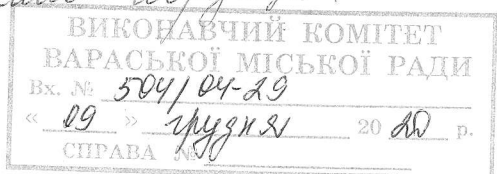 ВИКОНАВЧИЙ КОМІТЕТ
ВАРАСЬКОЇ МІСЬКОЇ РАДИ
Вх. № 504/04-29
« 09 » грудня 20 20 р.
СПРАВА №